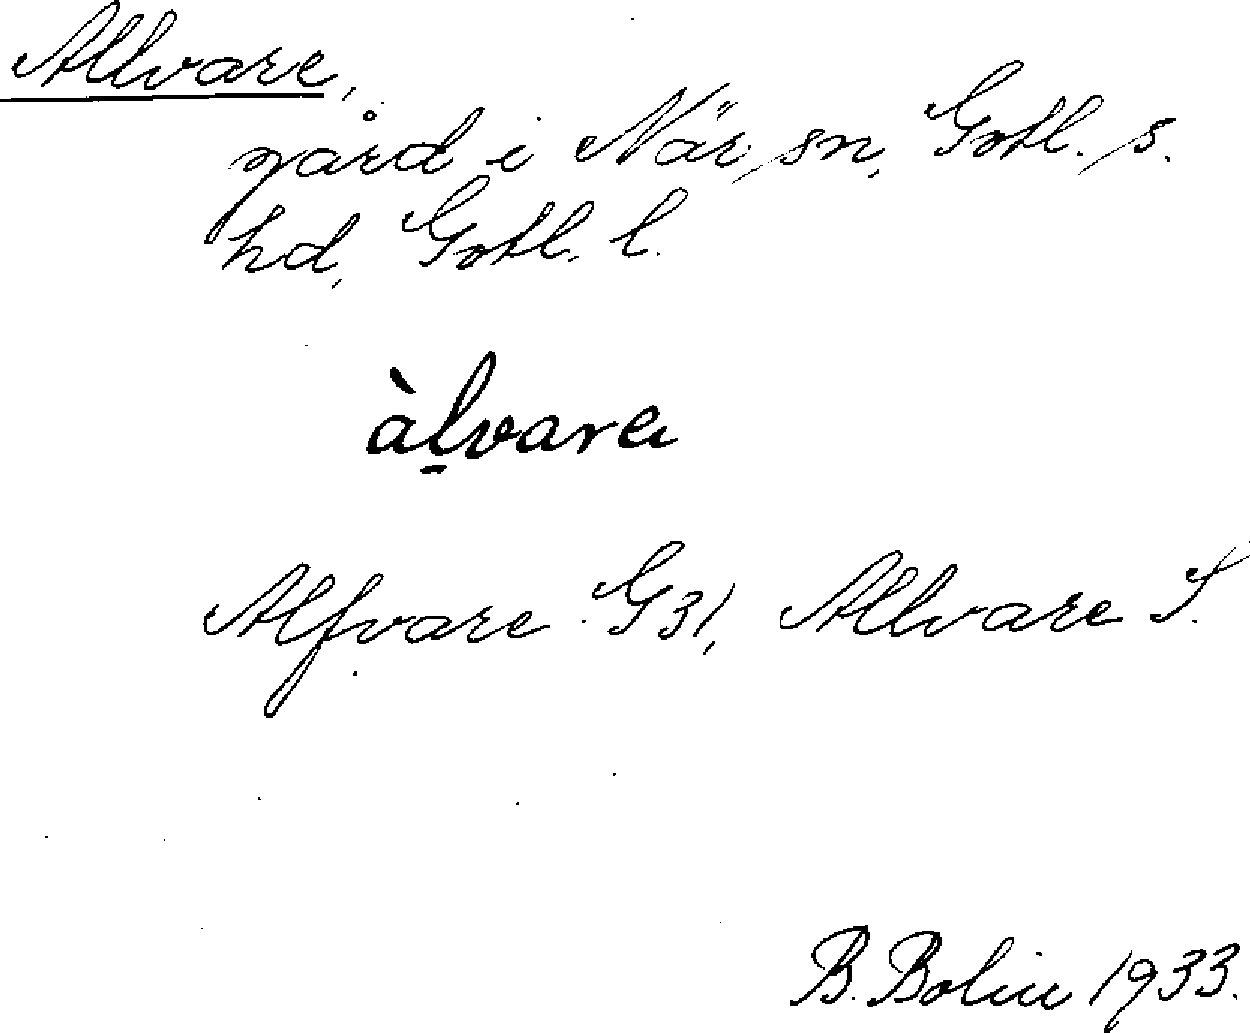 Allvare,
gård i När sn, Gotl. s.
hd, Gotl. l.
àl̠vare
Alfvare G31, Allvare S.
B. Bolin 1933.